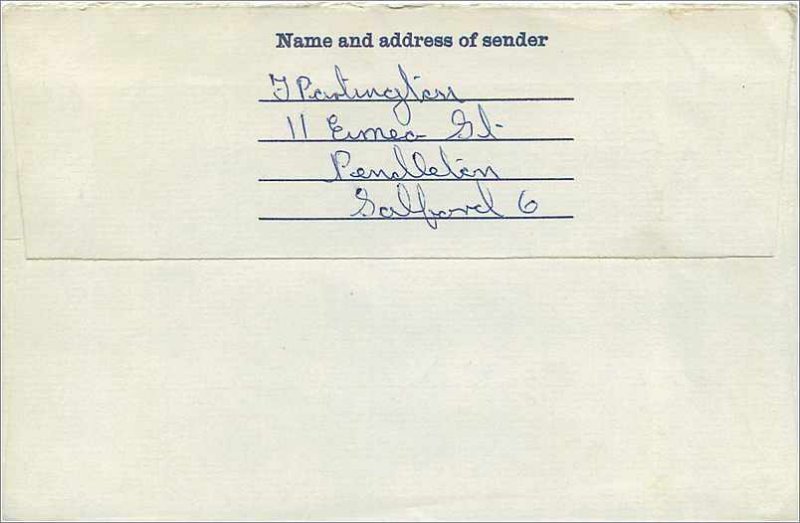 Name and address of sender
J Partington
11 Eimeo St.
Pendleton
Salford 6